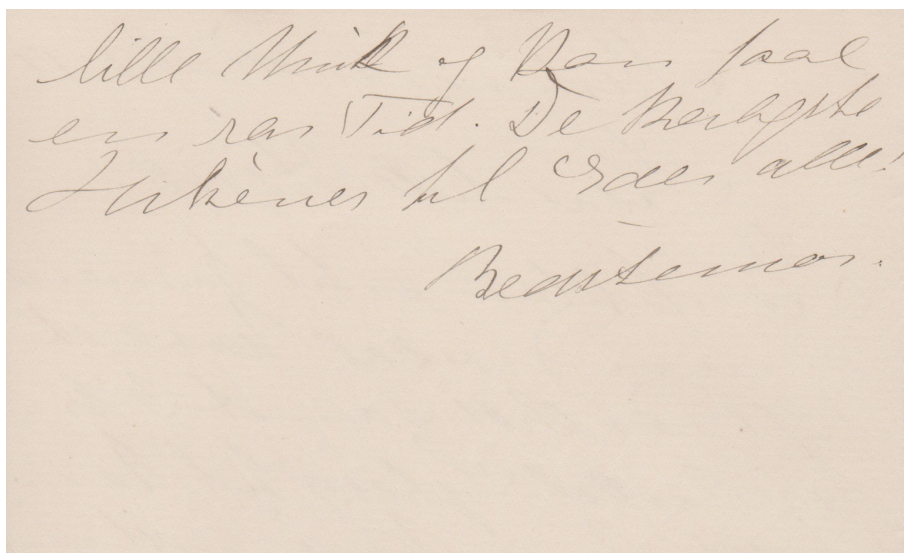 lille og Kan faae
en rar Tid. De kærligste
Hilsener til Eder alle!
Bedstemor.